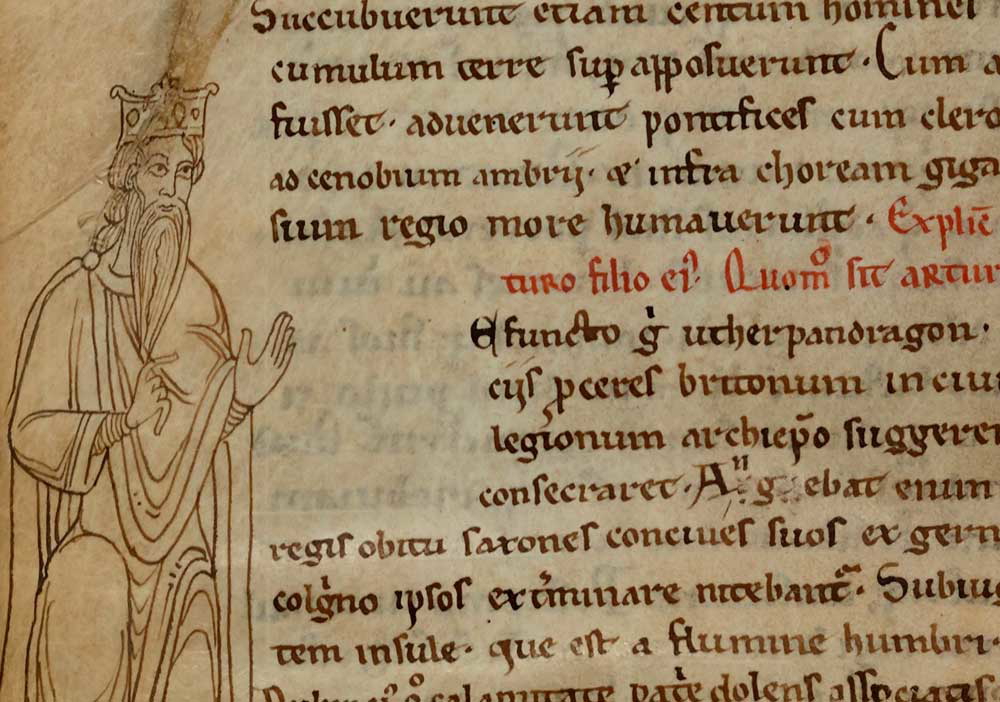 Succubuerunt etiam centum homines
cumulum terre sup apposuerunt. Cum a
fuisset. aduenerunt pontifices cum clero
ad cenobium ambrij. & infra choream giga
sium regio more humauerunt. Explic̄
turo filio ei᷒. Quom̊ sit artur
efuncto g̍ utherpandragon.
cijs ꝓceres britonum in ciui
legionum archiep̄o suggerer
consecraret. A͏ⁿgebat enim
regis obitu saxones conciues suos ex germ
colg̍no ipsos ext̍minare nitebant᷑. Subiug
tem insule. que est a flumine humbri.
calamitate pat̍e dolens associatis